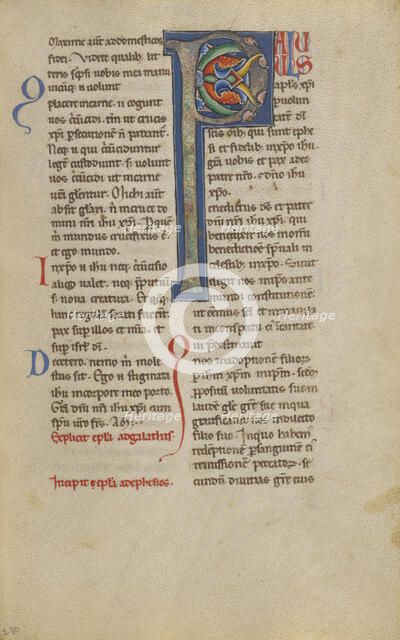 Maxime aut addomesticos
fidei. Videte qualib; lit
teris scpsi uobis mei manu
Quicuq; n uolunt
placere in carne. ii cogunt
uos circucidi. tm ut crucis
xpi psecutione n patiant.
Neq; n qui circuciduntur
lege custodiunt. s; uolunt
uos circucidi ut in carne
ura glientur. Michi aut
absit gliari. n in cruce do
mini nri ihu xpi. P quem
m mundus crucifixus e.
et ego mundo.
In xpo n ihu neq; circucisio
aliqd ualet. neq; pputiu
s; noua creatura. Et q̇cuq;
hanc regula secuti fuerint
pax sup illos et mia. et
sup isrl di.
De cetero. nemo m moles
tus sit. Ego n stigmata
ihu in corpore meo porto.
Gra dni nri ihu xpi cum
spu uro frs. Am
Explicit epla ad galathas.
Incipit epla ad ephesios.
PAULUS
apls xpi
ihu p uolun
tate di
scis oib; qui sunt ephe
si et fidelib; in xpo ihu
gra uobis et pax a deo
patre nro. et dno ihu
xpo.
Benedictus ds et pater
dni nri ihu xpi. qui
benedixit nos in omi
benedictione spirituali in
celestib; in xpo. Sicut
elegit nos in ipso ante
mundi constitutione
ut essem sci et inmacula
ti in conspectu ei in caritate
Qui pdestinauit
nos in adoptione filiorum
p ihm xpm in ipsm. scdm
ppositu uoluntatis sue in
laude glie gre sue in qua
gratificauit nos in dilecto
filio suo. In quo habem
redeptione p sanguine ei
remissione peccatorum. se
cundu diuitias gre eius
230
Heritage
Images